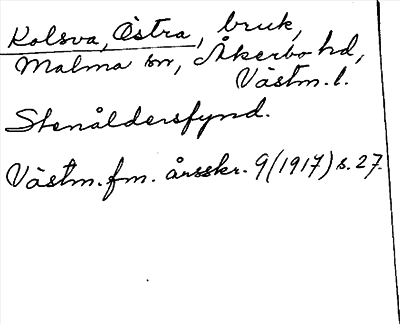 Kolsva, Östra, bruk,
Malma sn, Åkerbo hd,
Västm. l.
Stenåldersfynd.
Västm. fm. årsskr. 9 (1917) s. 27.